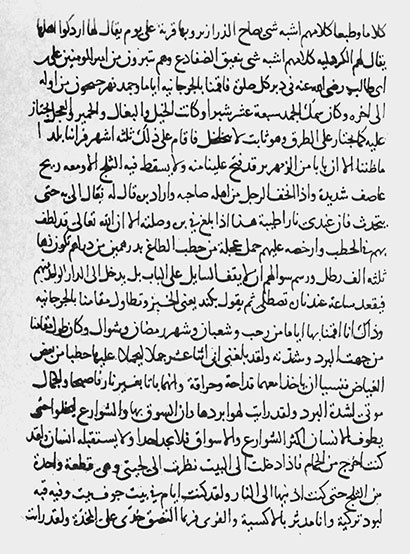 كلاما وطبعا كلامهم اشبه شى بصياح الزرازير وبها قرية على يوم يقال لها اردكوا اهلها
يقال لهم الكردليه كلامهم اشبه شى بنقيق الضفادع وهم يتبرون من امير المومنين على بن
ابى طالب رضى الله عنه فى دبر كل صلاة فاقمنا بالجرجانيه اياما وجمد نهر جيحون من اوله
الى اخره وكان سمك الجمد سبعة عشر شبرا وكانت الخيل والبغال والحمير والعجل تجتاز
عليه كما تجتاز على الطرق وهو ثابت لا يتخلخل فاقام على ذلك ثلثه اشهر فراينا بلدا
ما ظننا الا ان بابا من الزمهرير قد فتح علينا منه ولا يسقط فيه الثلج الا ومعه ريح
عاصف شديدة واذا اتحف الرجل من اهله صاحبه واراد بره قال له تعال الى حتى
نتحدث فان عندى نارا طيبة هذا اذا بلغ فى بره وصلته الا ان الله تعالى قد لطف
بهم فى الحطب وارخصه عليهم حمل عجلة من حطب الطاغ بدرهمين من دراهم تكون زها
ثلثه الف رطل ورسم سوالهم ان لا يقف السايل على الباب بل يدخل الى الدار الواحد منهم
فيقعد ساعة عند ناره يصطلى ثم يقول بكند يعنى الخبز وتطاول مقامنا بالجرجانيه
وذاك انا اقمنا بها اياما من رجب وشعبان وشهر رمضان وشوال وكان طول مقامنا
من جهت البرد وشدته ولقد بلغنى ان اثنا عشر جملا ليحملا عليها حطبا من بعض
الغياض فنسيا ان ياخذا معهما قداحة وحراقة وانهما باتا بغير نار فاصبحا والجمال
موتى لشدة البرد ولقد رايت لهوا بردها وان السوق بها والشوارع لتخلوا حتى
يطوف الانسان اكثر الشوارع والاسواق فلا يجد احدا ولا يستقبله انسان ولقد
كنت اخرج من الحمام فاذا دخلت الى البيت نظرت الى لحيتى وهى قطعة واحدة
من الثلج حتى كنت ادنيها الى النار ولقد كنت انام فى بيت جوف بيت وفيه قبه
لبود تركية وانا مدثر بالاكسية والفرى فربما التصق خدى على المخدة ولقد رايت